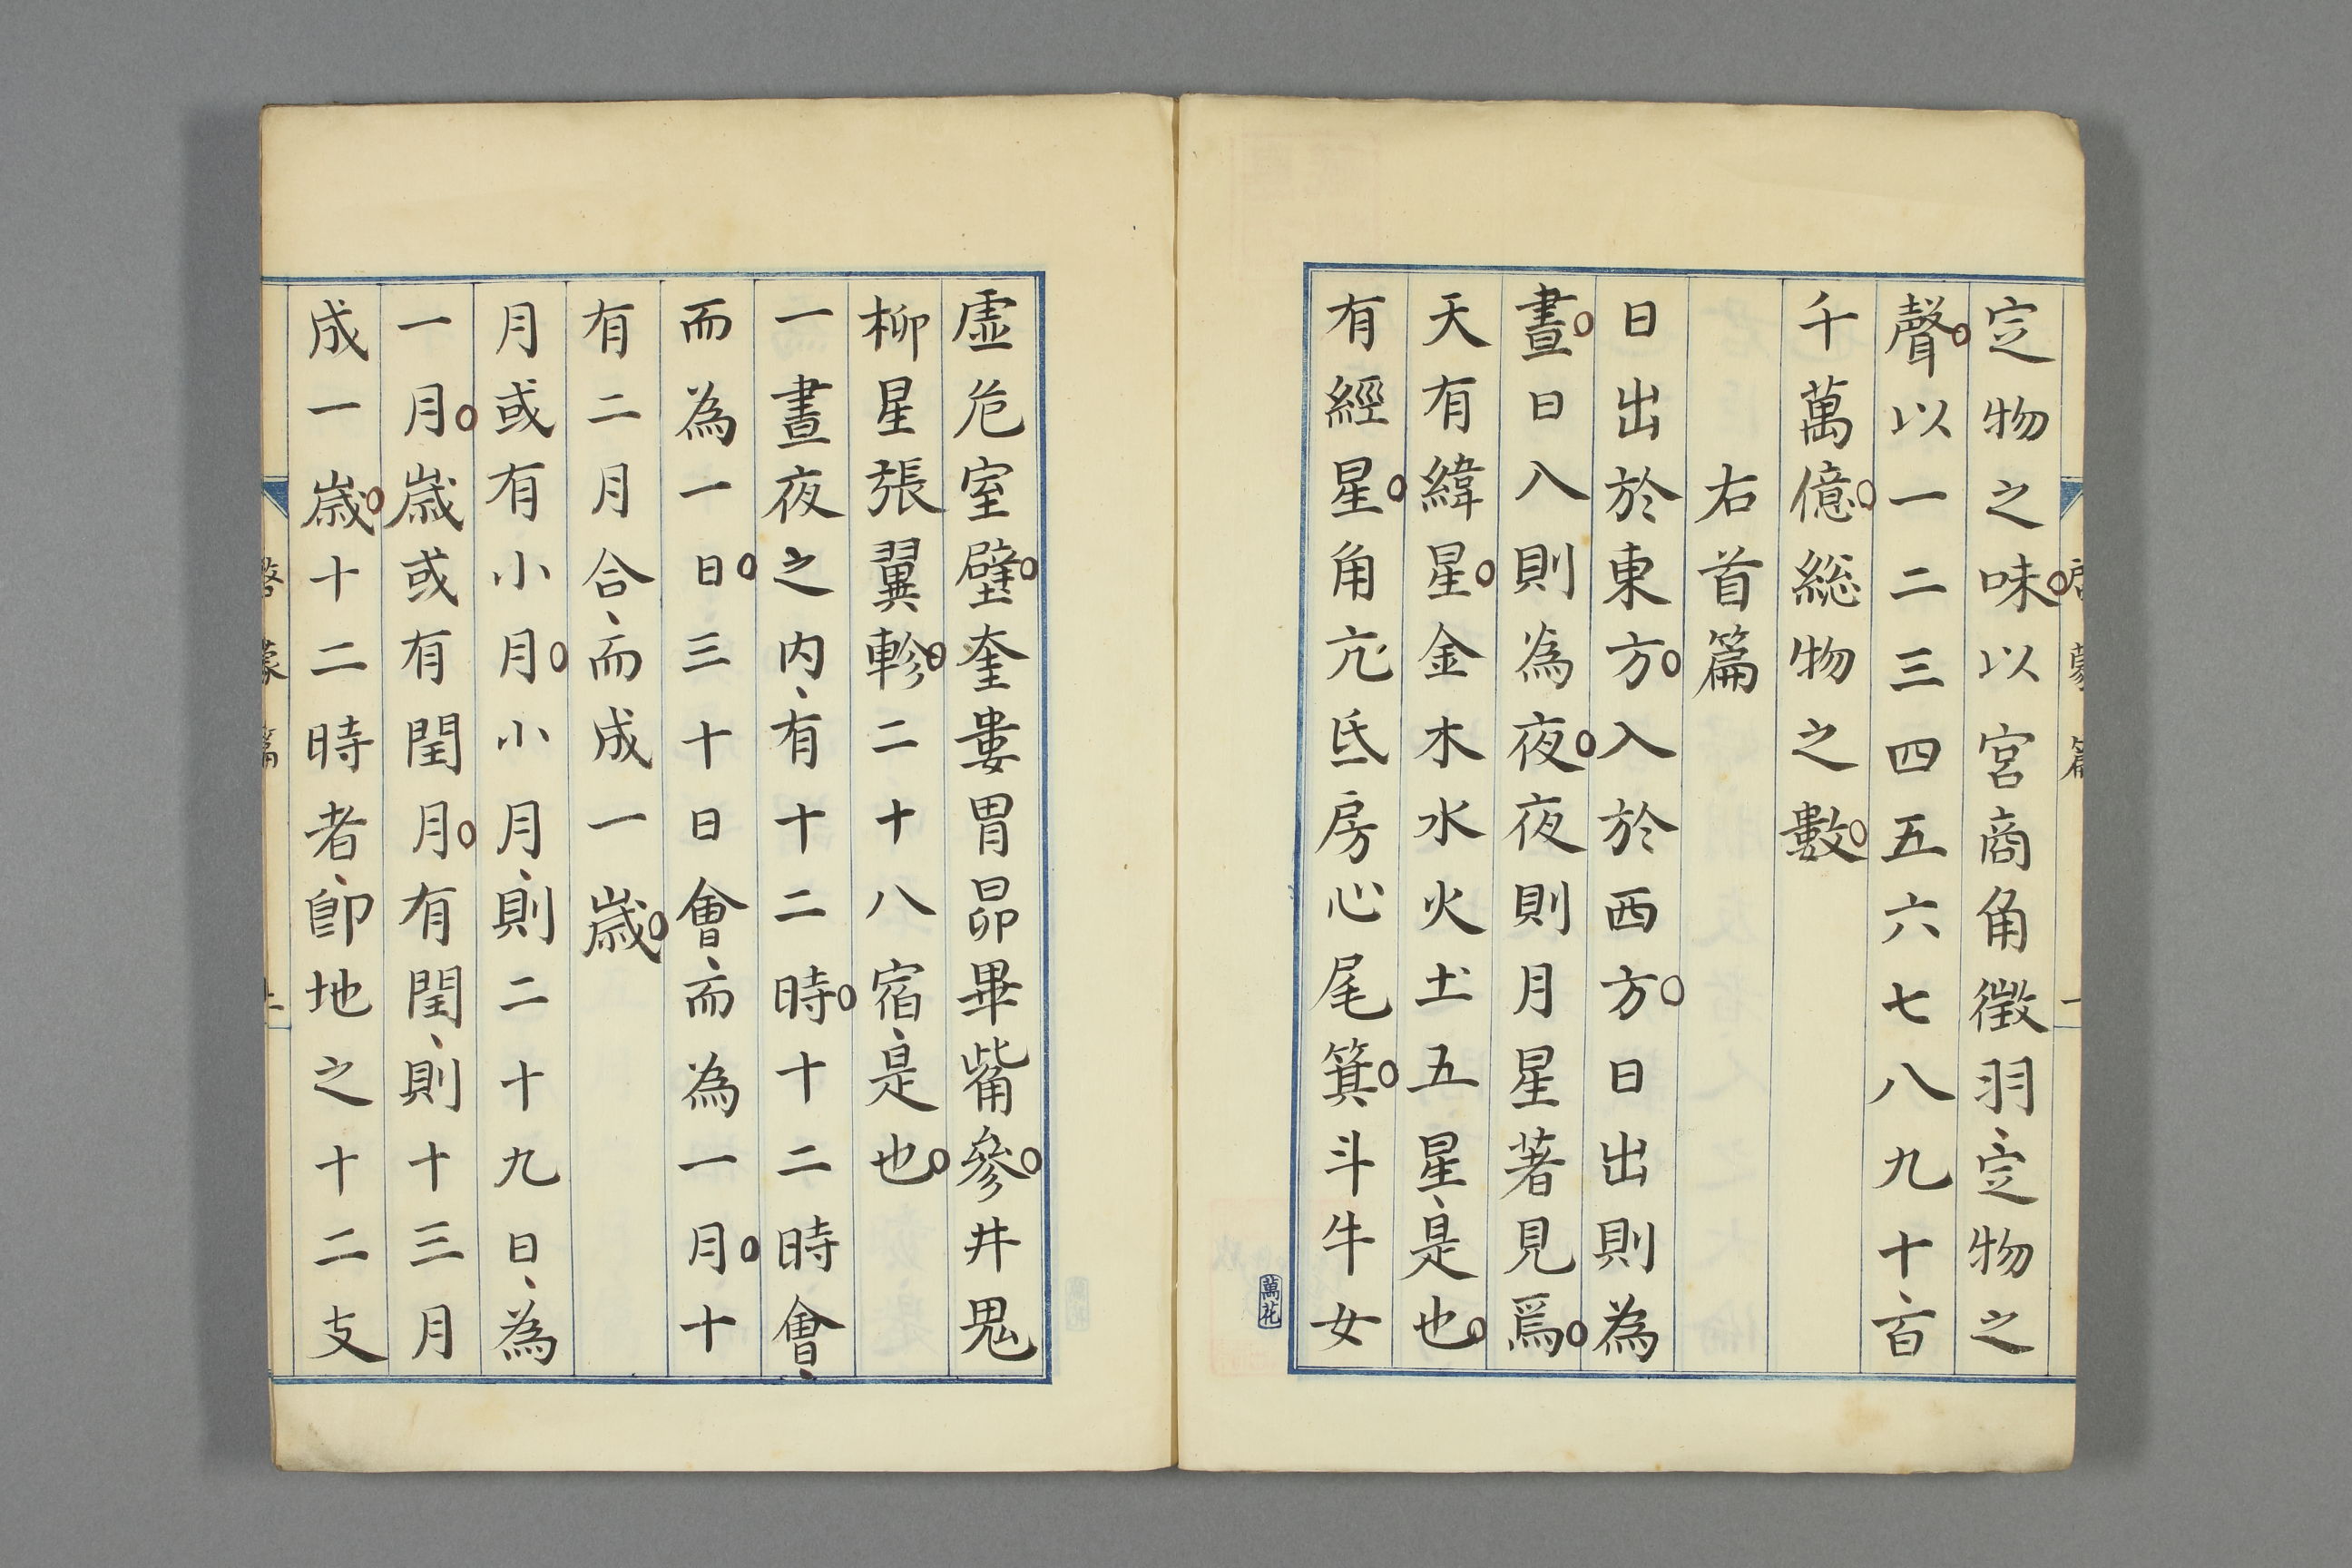 定物之味。以宮商角徵羽、定物之
聲。以一二三四五六七八九十、百
千萬億。総物之數。
右首篇
日出於東方。入於西方。日出則為
晝。日入則為夜。夜則月星著見焉。
天有緯星。金木水火土五星、是也。
有經星。角亢氐房心尾箕。斗牛女
萬花
虛危室壁。奎婁胃昴畢觜參。井鬼
柳星張翼軫。二十八宿、是也。
一晝夜之內、有十二時。十二時會、
而為一日。三十日會、而為一月。十
有二月合、而成一歲。
月或有小月。小月、則二十九日、為
一月。歲或有閏月。有閏、則十三月
成一歲。十二時者、卽地之十二支
啓蒙篇